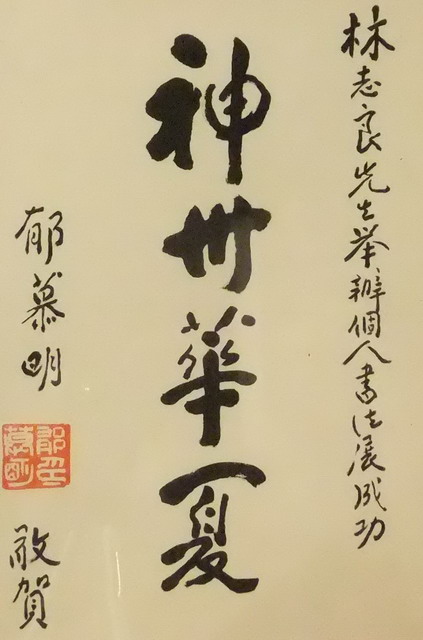 林志良先生举辦個人書法展成功
神州華夏
郁慕明
敬賀